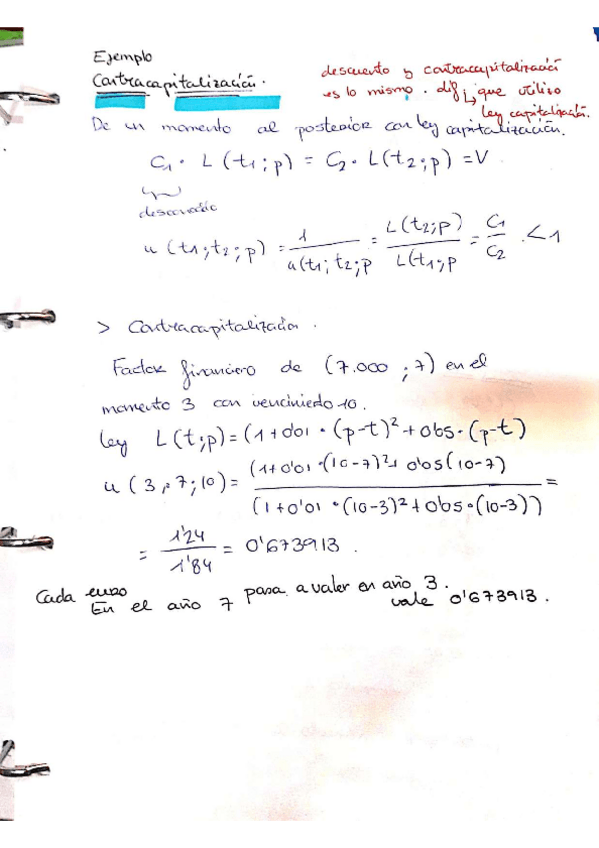 Ejemplo
Contracapitalización.
descuento y contracapitalización
es lo mismo. dif ↳ que utilizo
ley capitalización.
De un momento al posterior con ley capitalización.
C₁ · L(t₁;p) = C₂ · L(t₂;p) = V
u(t₁;t₂;p) = 1 / u(t₁;t₂;p = L(t₂;p) / L(t₁;p = C₁ / C₂ . < 1
> Contracapitalización.
Factor financiero de (7.000 ; 7) en el
momento 3 con vencimiento 10.
ley L(t;p) = (1+0'01 · (p-t)² + 0'05 · (p-t)
u(3,7;10) = (1+0'01·(10-7)²+ 0'05(10-7) / (1+0'01·(10-3)²+0'05·(10-3)) =
= 1'24 / 1'84 = 0'673913.
Cada euro
En el año 7 pasa a valer en año 3.
vale 0'673913.